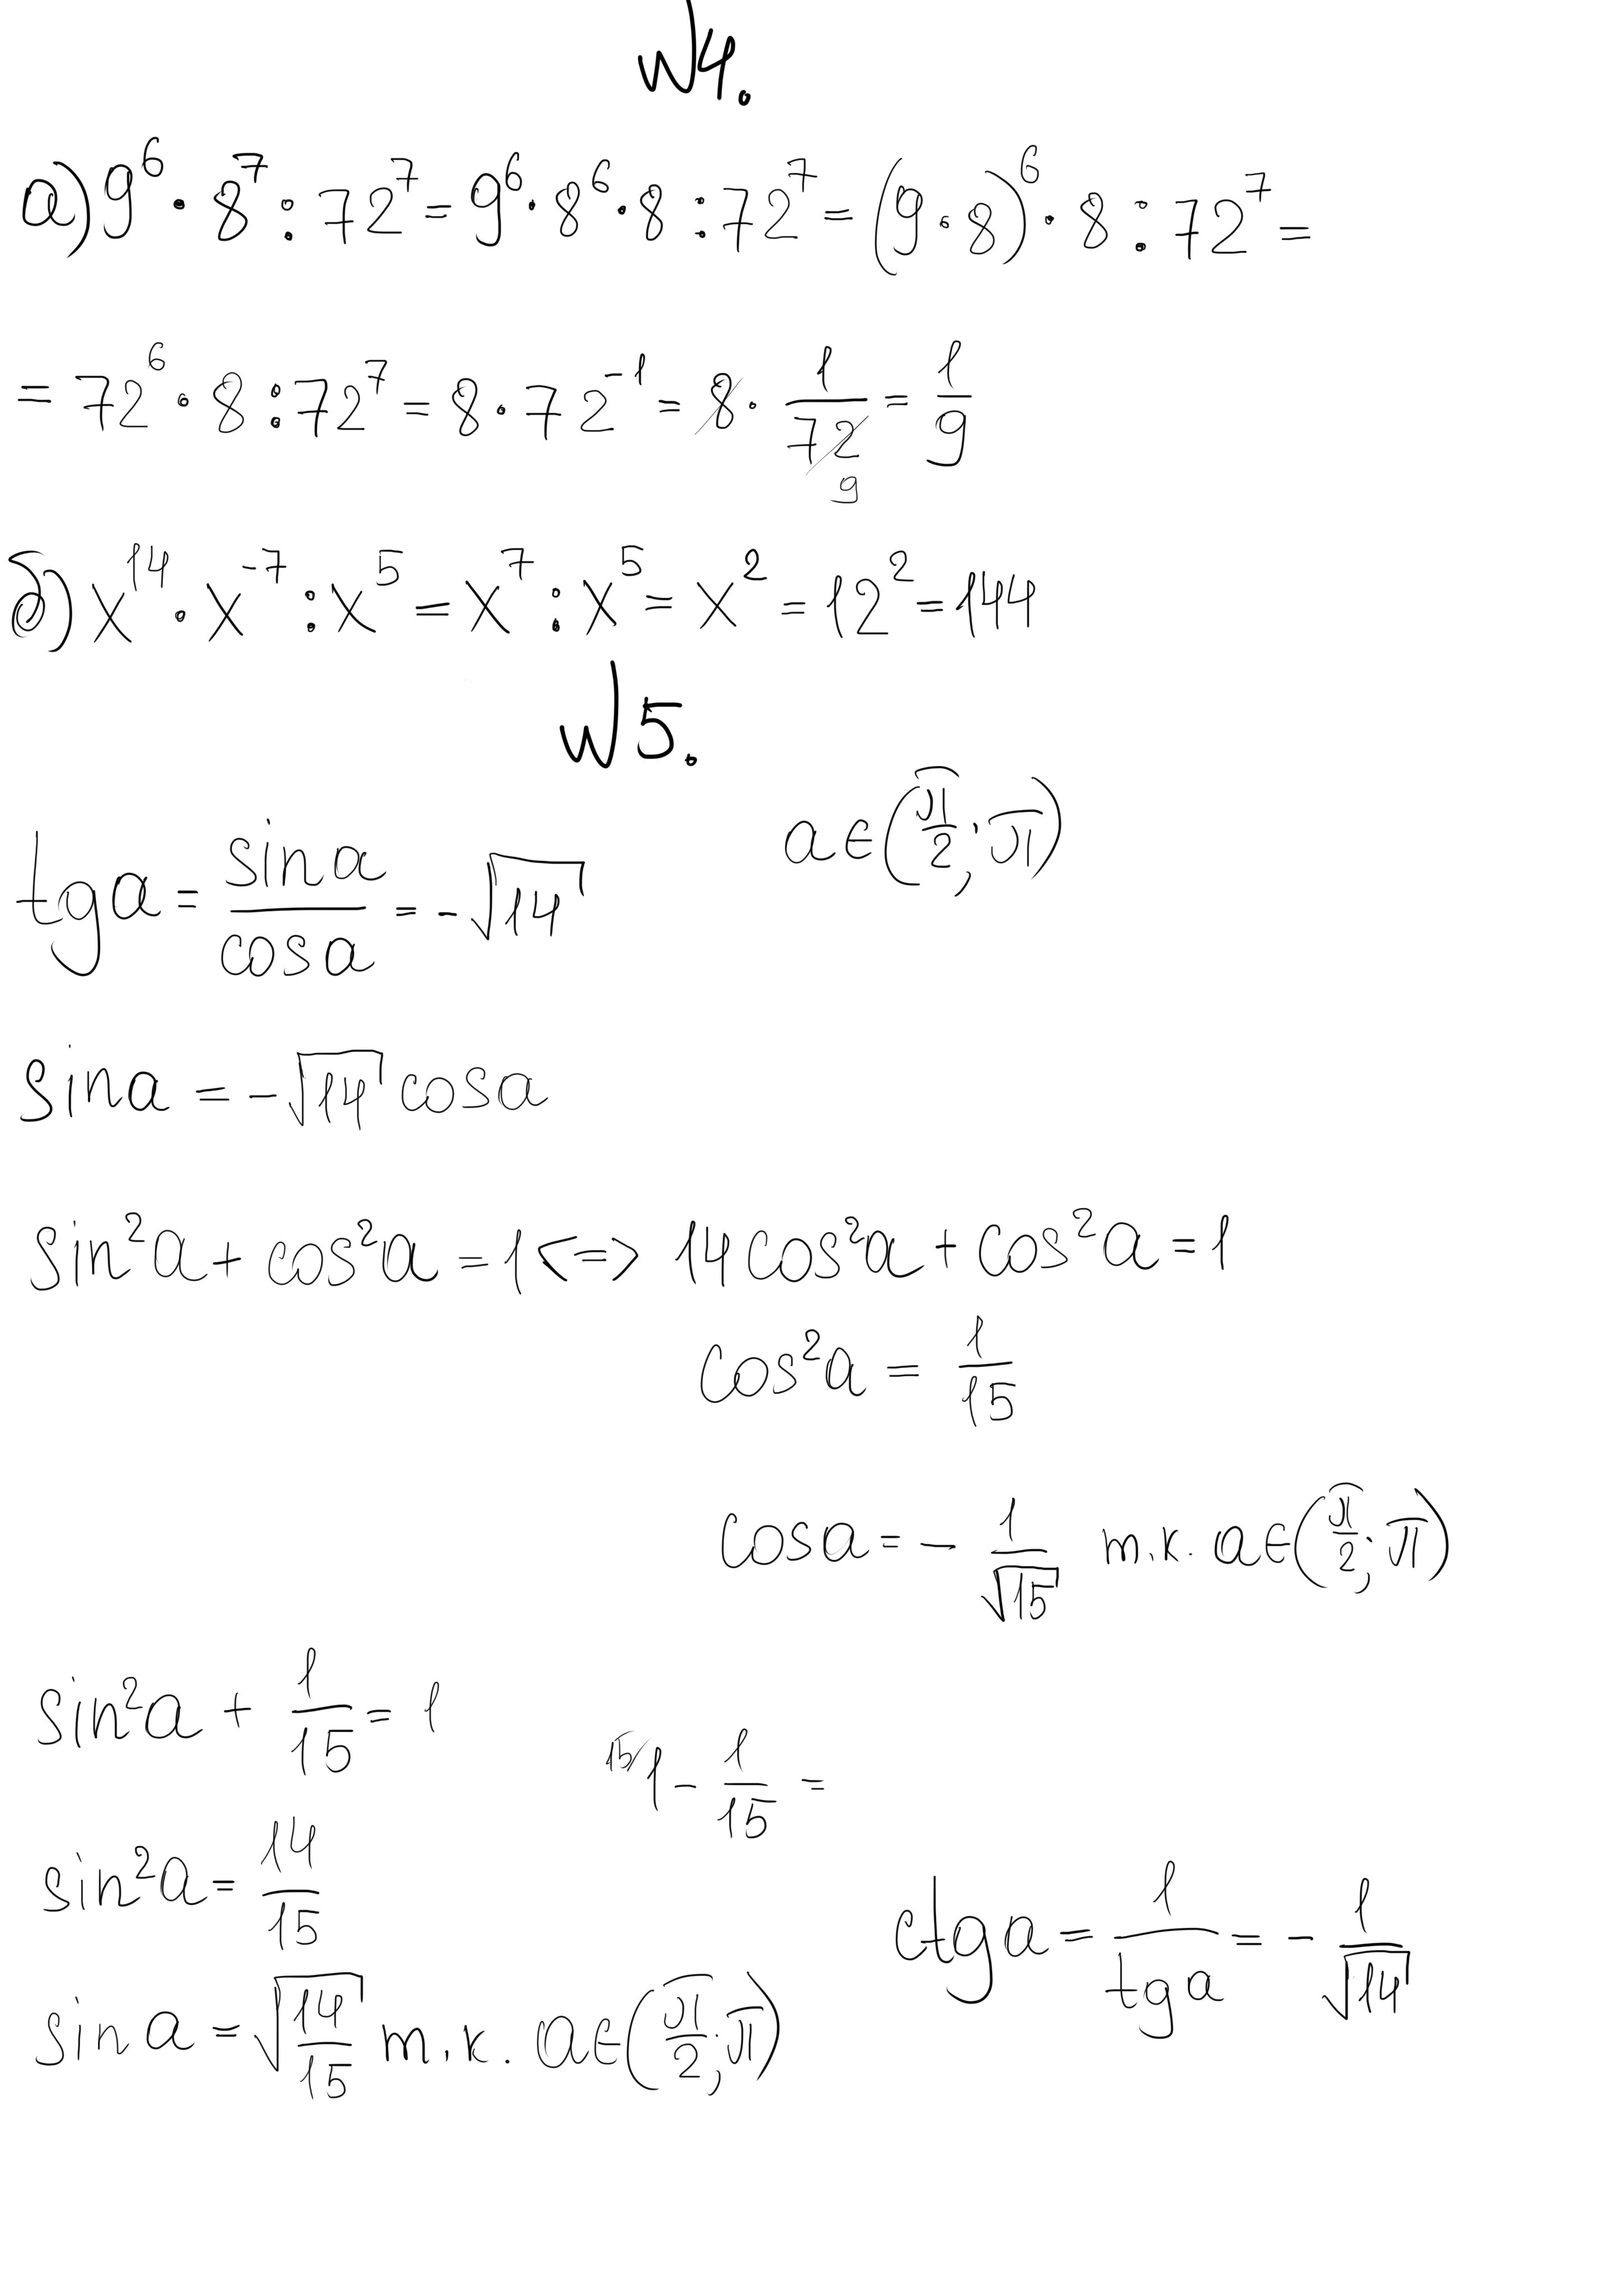 №4.
а) 9⁶ · 8⁷ : 72⁷ = 9⁶ · 8⁶ · 8 : 72⁷ = (9 · 8)⁶ · 8 : 72⁷ =
= 72⁶ · 8 : 72⁷ = 8 · 72⁻¹ = 8 · 1/72 = 1/9
9
б) x¹⁴ · x⁻⁷ : x⁵ = x⁷ : x⁵ = x² = 12² = 144
№5.
tg a = sin a / cos a = -√14 a ∈ (π/2; π)
sin a = -√14 cos a
sin²a + cos²a = 1 <=> 14 cos²a + cos²a = 1
cos²a = 1/15
cos a = - 1/√15 т.к. a ∈ (π/2; π)
sin²a + 1/15 = 1
15/ 1 - 1/15 =
sin²a = 14/15
ctg a = 1/tg a = - 1/√14
sin a = √(14/15) т.к. a ∈ (π/2; π)